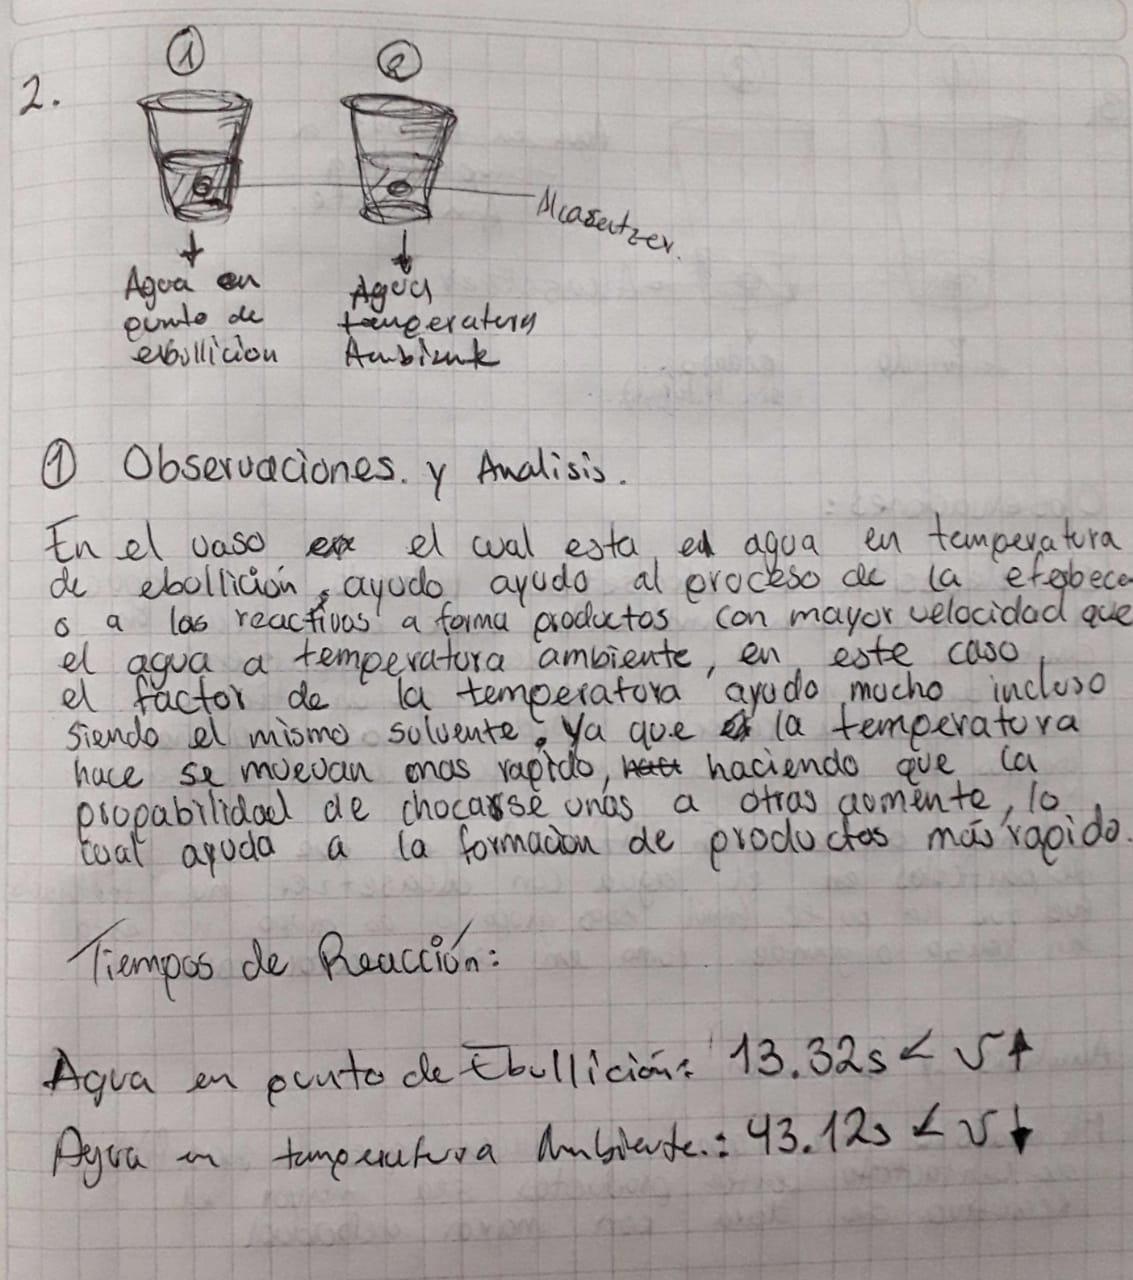 ① ②
2.
Alcaseltzer.
Agua en
punto de
ebullicion
Agua
temperatura
Ambiente
① Observaciones. y Analisis.
En el vaso el cual esta el agua en temperatura
de ebollición, ayudo ayudo al proceso de la efeb
o a los reactivos a forma productos con mayor velocidad que
el agua a temperatura ambiente, en este caso,
el factor de la temperatura ayudo mucho incluso
siendo el mismo solvente. Ya que la temperatura
hace se muevan mas rapido, haciendo que la
propabilidad de chocarse unas a otras aumente, lo
cual ayuda a la formacion de productos más rapido.
Tiempos de Reacción:
Agua en punto de Ebullición: 13.32s < v↑
Agua en temperatura Ambiente.: 43.12s < v↓